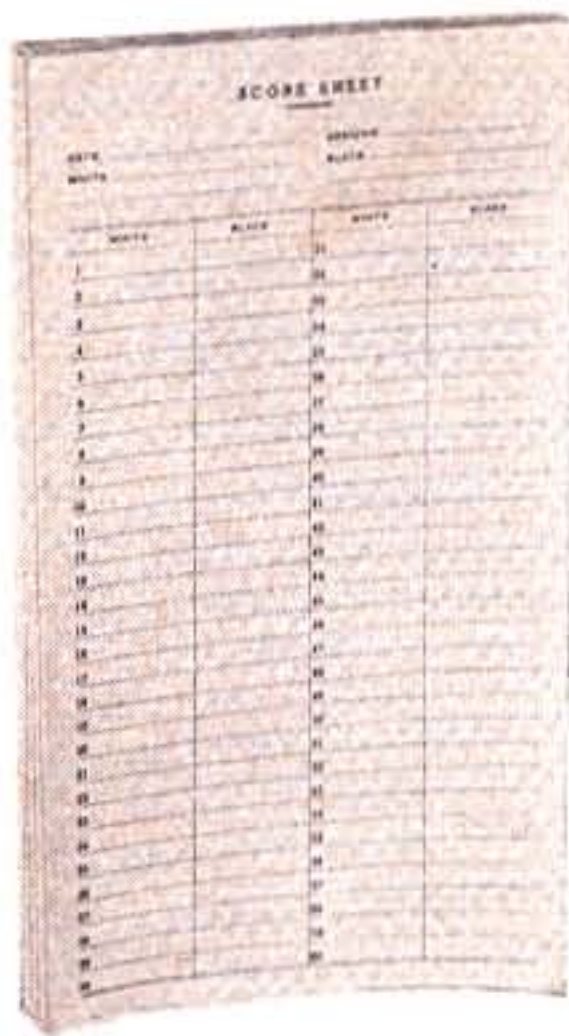 SCORE SHEET
DATE OPENING
WHITE BLACK
WHITE BLACK WHITE BLACK
1 31
2 32
3 33
4 34
5 35
6 36
7 37
8 38
9 39
10 40
11 41
12 42
13 43
14 44
15 45
16 46
17 47
18 48
19 49
20 50
21 51
22 52
23 53
24 54
25 55
26 56
27 57
28 58
29 59
30 60